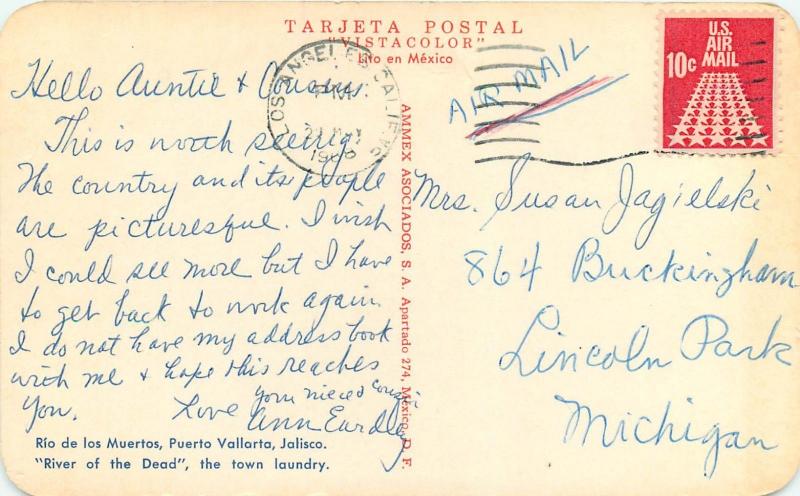 TARJETA POSTAL
"VISTACOLOR"
Lito en México
LOS ANGELES, CALIF.
PM
1968
U.S.
AIR
MAIL
10c
AIR MAIL
Hello Auntie & Cousins.
This is worth seeing
the country and its people
are picturesque. I wish
I could see more but I have
to get back to work again.
I do not have my address book
with me & hope this reaches
you.
Love your niece & cousin
Ann Eardley
Río de los Muertos, Puerto Vallarta, Jalisco.
"River of the Dead", the town laundry.
AMMEX ASOCIADOS, S. A. Apartado 274, México, D. F.
Mrs. Susan Jagielski
864 Buckingham
Lincoln Park
Michigan